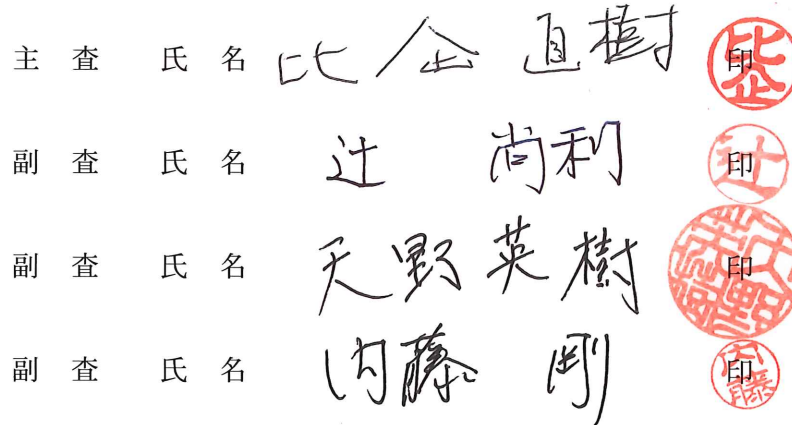 主 査 氏 名 比企 直樹 印
副 査 氏 名 辻 尚利 印
副 査 氏 名 天野英樹 印
副 査 氏 名 内藤 剛 印